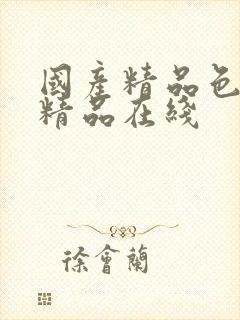 國產精品色
精品在綫
徐會蘭